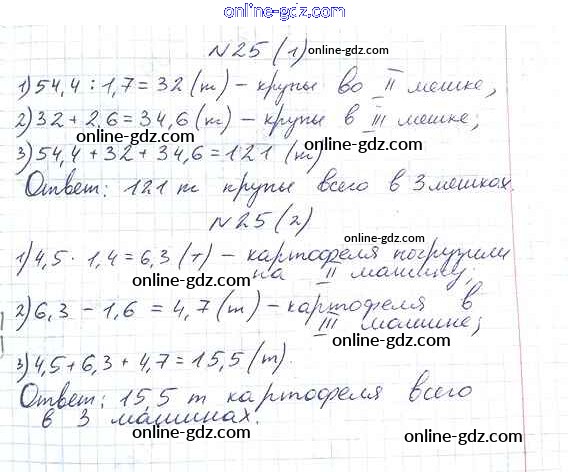 online-gdz.com
N25 (1) online-gdz.com
1) 54,4 : 1,7 = 32 (т) – крупы во II мешке,
online-gdz.com
2) 32 + 2,6 = 34,6 (т) – крупы в III мешке;
online-gdz.com online-gdz.com
3) 54,4 + 32 + 34,6 = 121 (т)
online-gdz.com
Ответ: 121 т крупы всего в 3 мешках.
N25 (2)
online-gdz.com
1) 4,5 · 1,4 = 6,3 (т) – картофеля погрузили
на II машину;
online-gdz.com online-gdz.com
2) 6,3 – 1,6 = 4,7 (т) – картофеля в
III машине;
online-gdz.com
3) 4,5 + 6,3 + 4,7 = 15,5 (т).
online-gdz.com
Ответ: 15,5 т картофеля всего
в 3 машинах.
online-gdz.com online-gdz.com
online-gdz.com